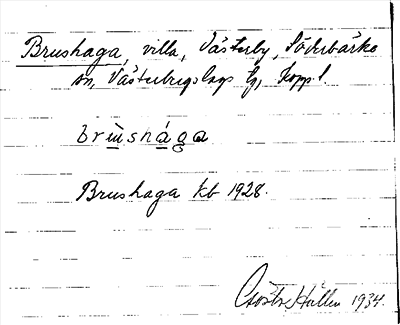 Brushaga, villa, Västerby, Söderbärke
sn, Västerbergslags tg, Kopp. l.
brùshága
Brushaga kb 1928.
Gösta Hallin 1934.